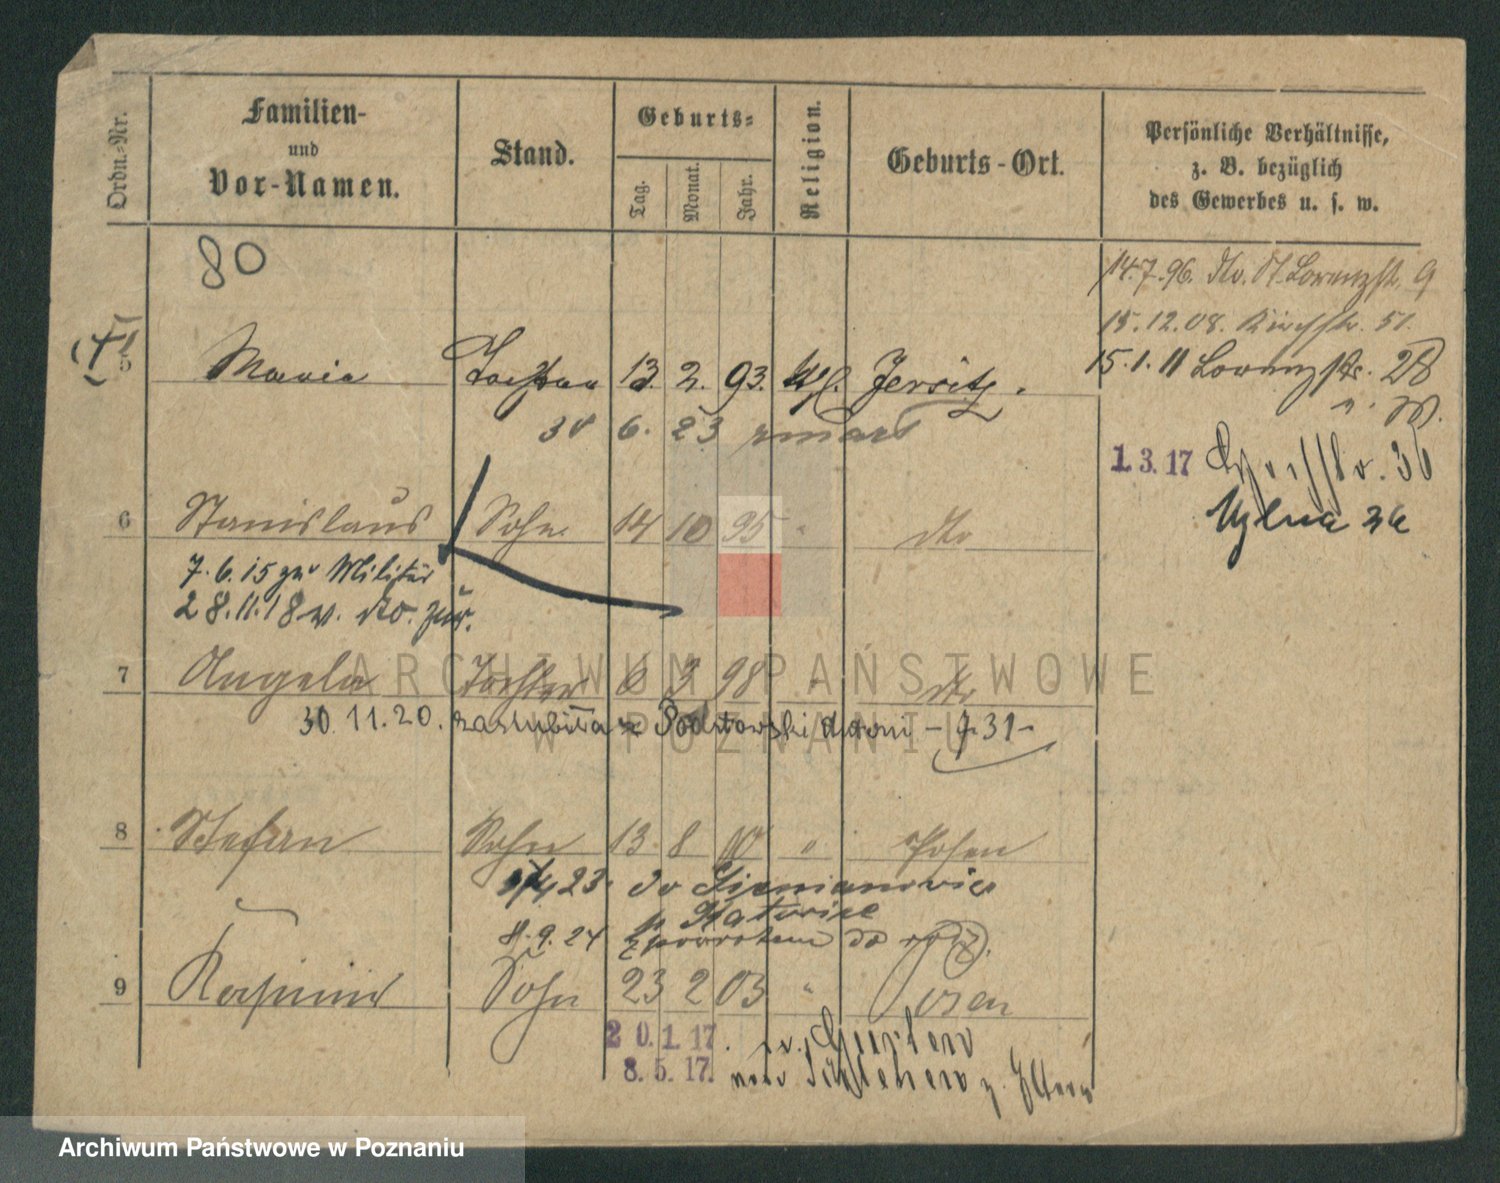 Ordn.-Nr.
Familien-
und
Vor-Namen.
Stand.
Geburts-
Tag.
Monat.
Jahr.
Religion.
Geburts-Ort.
Persönliche Verhältnisse,
z. B. bezüglich
des Gewerbes u. s. w.
80
14.7.96. Lorenzstr. 9
15.12.08. Kirchstr. 51.
5 Maria Tochter 13. 2. 93. kath. Jersitz.
15.1.11 Lorenzstr. 28
6. 23 zmarł
1.3.17
6 Stanislaus Sohn 14 10 95 " dto
Uzlna 36
7.6.15 zur Militär
28.11.18 v. dto. zur.
7 Angela Tochter 6 3 98 dto
30.11.20. zaslubiła z Podstawski Antoni - 31-
ARCHIWUM PAŃSTWOWE
W POZNANIU
8 Stefan Sohn 13 8 00 " Posen
4 23. do Siemianowic
p. Katowice
8.9.24 z powrotem do rodz.
9 Kasimir Sohn 23 2 03 " Posen
20.1.17.
8.5.17. von z. Eltern
Archiwum Państwowe w Poznaniu